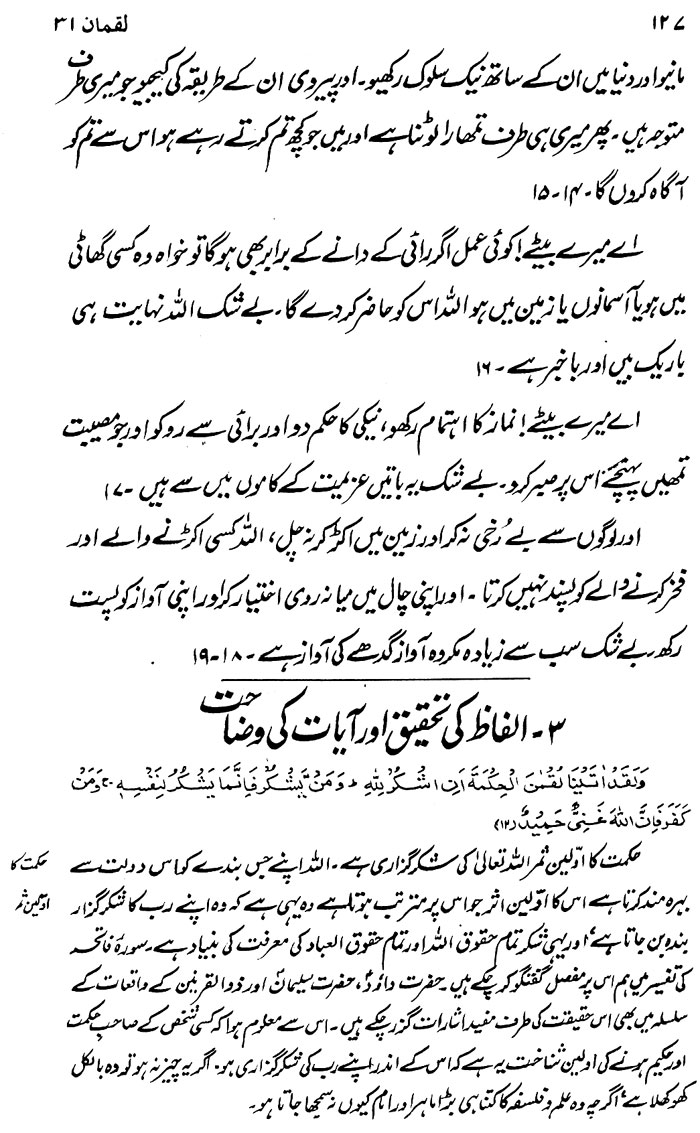 ۱۲۷
لقمان ۳۱
مانیو اور دنیا میں ان کے ساتھ نیک سلوک رکھیو۔ اور پیروی ان کے طریقہ کی کیجیو جو میری طرف
متوجہ ہیں۔ پھر میری ہی طرف تمھارا لوٹنا ہے اور میں جو کچھ تم کرتے رہے ہو اس سے تم کو
آگاہ کروں گا۔ ۱۴-۱۵
اے میرے بیٹے! کوئی عمل اگر رائی کے دانے کے برابر بھی ہو گا تو خواہ وہ کسی گھاٹی
میں ہو یا آسمانوں یا زمین میں ہو اللہ اس کو حاضر کر دے گا۔ بے شک اللہ نہایت ہی
باریک بیں اور باخبر ہے۔ ۱۶
اے میرے بیٹے! نماز کا اہتمام رکھو، نیکی کا حکم دو اور برائی سے روکو اور جو مصیبت
تمھیں پہنچے اس پر صبر کرو۔ بے شک یہ باتیں عزیمت کے کاموں میں سے ہیں۔ ۱۷
اور لوگوں سے بے رُخی نہ کر اور زمین میں اکڑ کر نہ چل، اللہ کسی اکڑنے والے اور
فخر کرنے والے کو پسند نہیں کرتا۔ اور اپنی چال میں میانہ روی اختیار کر اور اپنی آواز کو پست
رکھ، بے شک سب سے زیادہ مکروہ آواز گدھے کی آواز ہے۔ ۱۸-۱۹
۳۔ الفاظ کی تحقیق اور آیات کی وضاحت
وَلَقَدْ اٰتَيْنَا لُقْمٰنَ الْحِكْمَةَ اَنِ اشْكُرْ لِلّٰهِ ؕ وَمَنْ يَّشْكُرْ فَاِنَّمَا يَشْكُرُ لِنَفْسِهٖ ۚ وَمَنْ
كَفَرَ فَاِنَّ اللّٰهَ غَنِيٌّ حَمِيْدٌ (۱۲)
حکمت کا اولین ثمر اللہ تعالیٰ کی شکر گزاری ہے۔ اللہ اپنے جس بندے کو اس دولت سے
حکمت کا
بہرہ مند کرتا ہے اس کا اوّلین اثر جو اس پر مترتب ہوتا ہے وہ یہی ہے کہ وہ اپنے رب کا شکر گزار
اوّلین ثمر
بندہ بن جاتا ہے اور یہی شکر تمام حقوق اللہ اور تمام حقوق العباد کی معرفت کی بنیاد ہے۔ سورۂ فاتحہ
کی تفسیر میں ہم اس پر مفصل گفتگو کر چکے ہیں۔ حضرت داؤدؑ، حضرت سلیمانؑ اور ذوالقرنین کے واقعات کے
سلسلہ میں بھی اس حقیقت کی طرف مفید اشارات گزر چکے ہیں۔ اس سے معلوم ہوا کہ کسی شخص کے صاحبِ حکمت
اور حکیم ہونے کی اولین شناخت یہ ہے کہ اس کے اندر اپنے رب کی شکر گزاری ہو۔ اگر یہ چیز نہ ہو تو وہ بالکل
کھوکھلا ہے اگرچہ وہ علم و فلسفہ کا کتنا ہی بڑا ماہر اور امام کیوں نہ سمجھا جاتا ہو۔